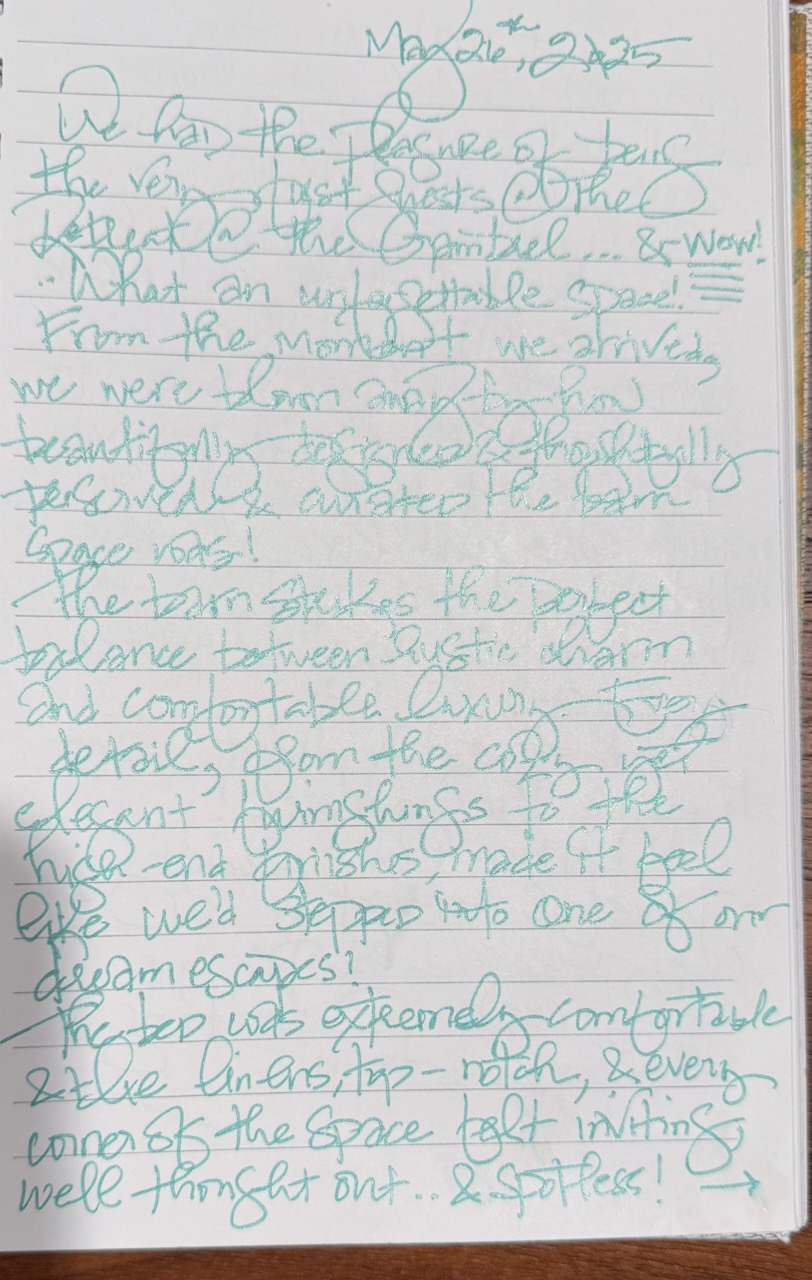 May 26th, 2025
We had the pleasure of being
the very first guests @ the
Retreat @ the ... & wow!
What an unforgettable space!
From the moment we arrived,
we were blown away by how
beautifully designed & thoughtfully
perserved & curated the barn
space was!
The barn strikes the perfect
balance between rustic charm
and comfortable luxury. Every
detail, from the cozy yet
elegant furnishings to the
high-end finishes, made it feel
like we'd stepped into one of our
dream escapes!
The bed was extremely comfortable
& the linens, top-notch, & every
corner of the space felt inviting,
well thought out.. & spotless! →